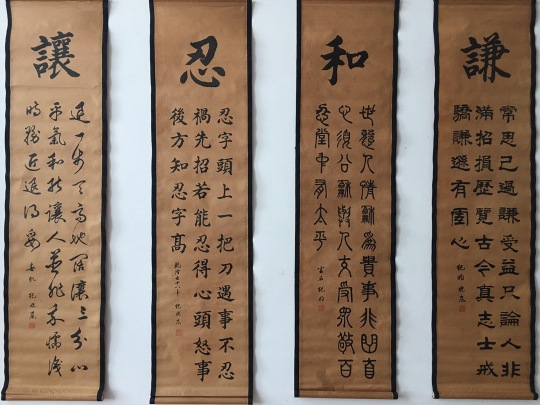 謙
常思己過謙受益只論人非
滿招損歷覽古今真志士戒
驕謙遜有壹心
和
世態人情和為貴事非曲直
心須公和與人交受眾敬百
忍堂中有太平
忍
忍字頭上一把刀遇事不忍
禍先招若能忍得心頭怒事
後方知忍字高
讓
退一步天高地闊讓三分心
平氣和
讓人並非我懦
時務
退得妥